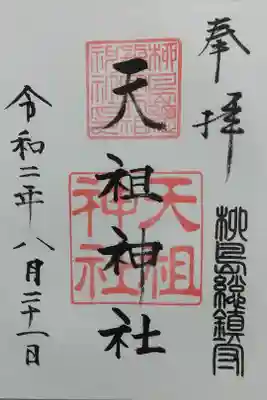 奉拝
柳島総鎮守
天祖神社
天祖
神社
令和二年八月二十一日